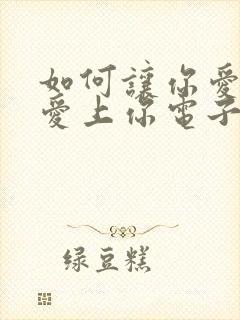 如何讓你愛
愛上你電子
绿豆糕